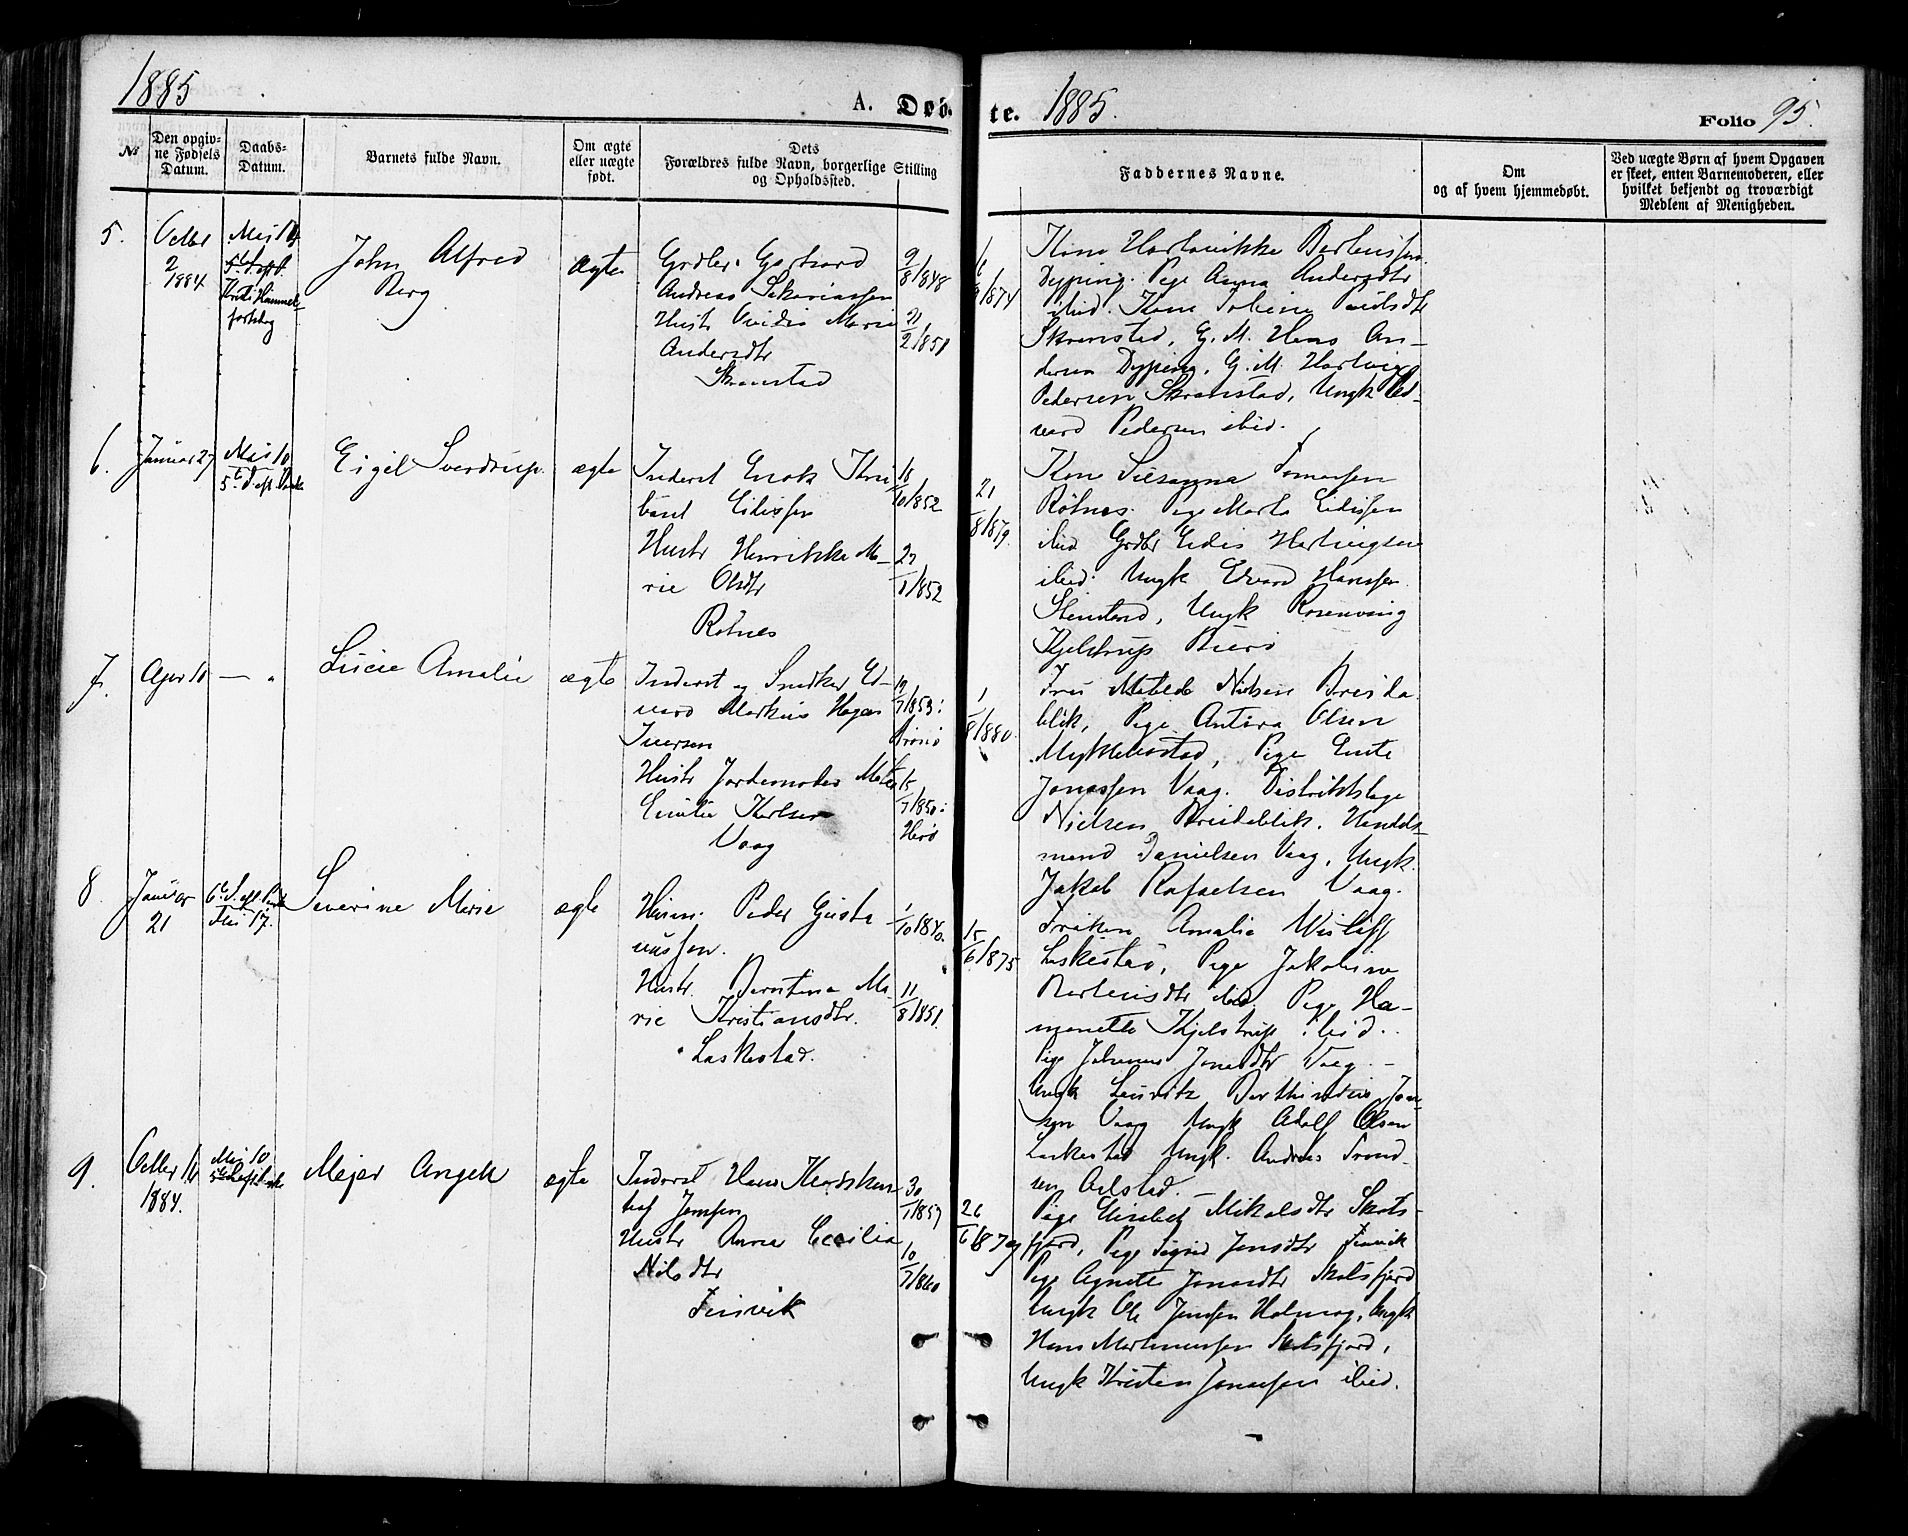 1885
A. Døb-
te. 1885.
Folio 95.
№
Den opgiv-
ne Fødsels
Datum.
Daabs-
Datum.
Barnets fulde Navn.
Om ægte
eller uægte
født.
Dets
Forældres fulde Navn, borgerlige Stilling
og Opholdssted.
Faddernes Navne.
Om
og af hvem hjemmedøbt.
Ved uægte Børn af hvem Opgaven
er skeet, enten Barnemoderen, eller
hvilket bekjendt og troværdigt
Medlem af Menigheden.
5.
Octbr
2
1884
John Alfred
Berg
ægte
Grdbr. Gerhard
Andreas Sakariassen
Hustr Ovidia Marie
Andersdtr
Skranstad
9/8 1848
21/2 1851
1874
Kone Hartvikke Bertheussen
Dyping. Pige Anna Andersdtr
ibid. Kone
Skranstad, G. M. Hans An-
dersen Dyping, G. M. Hartvig
Pedersen Skranstad, Ungk Ed-
vard Pedersen ibid.
6.
Januar 27
Mai 10
Eigil Sverdrup.
ægte
Inderst Enok Kri
Eidissen
Hustr Henrikke Ma-
rie Olsdtr
Røtnes
10/1852
27/1 1852
21/8 1879.
Kone Susanna Tomassen
Røtnes. Pige Marta Eidissen
ibid Grdbr Eidis Hartvigsen
ibid. Ungk Edvard Hanssen
Stenland, Ungk Rosenving
Kjelstrup
7.
April 10
— "
Lucie Amalie
ægte
Inderst og Snedker Ed-
vard Markus Hagen
Iversen
Hustr Jordemoder Mette
Emilie Karlsen
Vaag
7/1853:
15/7 1850:
Herø
1/8 1880.
Fru Matilde Nielsen Breida-
blik, Pige Antora Olsen
Myklebostad, Pige Ente
Jonassen Vaag. Distriktslæge
Nielsen Breidablik. Handels-
mand Danielsen Vaag, Ungk.
Jakob Rafaelsen Vaag.
8.
Januar
21
Severine Marie
ægte
Peder Gusta
vussen.
Hustr. Berntine Ma-
rie Kristiansdtr.
Laskestad.
1/10 1840.
11/8 1851.
15/6 1875
Frøken Amalie Wisløff
Laskestad, Pige Jakobine
Bertheusdtr ibid. Pige Ha-
Kjelstrup ibid.
Pige Johanna Jonasdtr Vaag. —
Ungk Lauritz Berthinius Jon-
sen Vaag Ungk Adolf Olsen
Laskestad Ungk. Andreas Trond-
sen Aalstad. —
9.
Octbr 16
1884.
Mai 10
Mejer Angell
ægte
Inderst Hans
Jensen
Hustr Anna Cecilia
Nilsdtr
Finvik
30/1 1857
10/7 1860
26/6 1879
Pige Elisabet Mikalsdtr Skots-
fjord, Pige Sigrid Jensdtr Finvik
Pige Agnette Jonasdtr Skotsfjord
Ungk Ole Jenssen Holmog, Ungk
Hans Martinussen Skotsfjord,
Ungk Kristen Jonassen ibid.